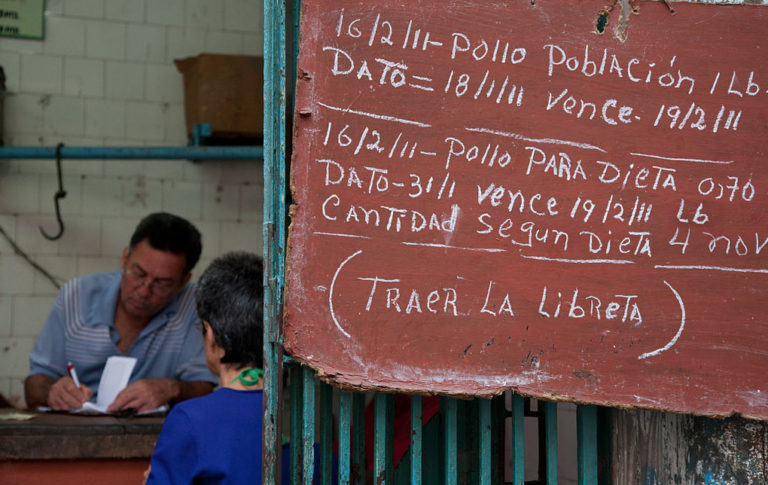 16/2/11- Pollo Población 1 Lb.
DATO= 18/1/11 Vence- 19/2/11
16/2/11- Pollo PARA DieTA 0,70
DATO- 31/1 vence 19/2/11 Lb
CANTiDAd Segun DieTA 4 nov
(TRAER LA LibreTA)